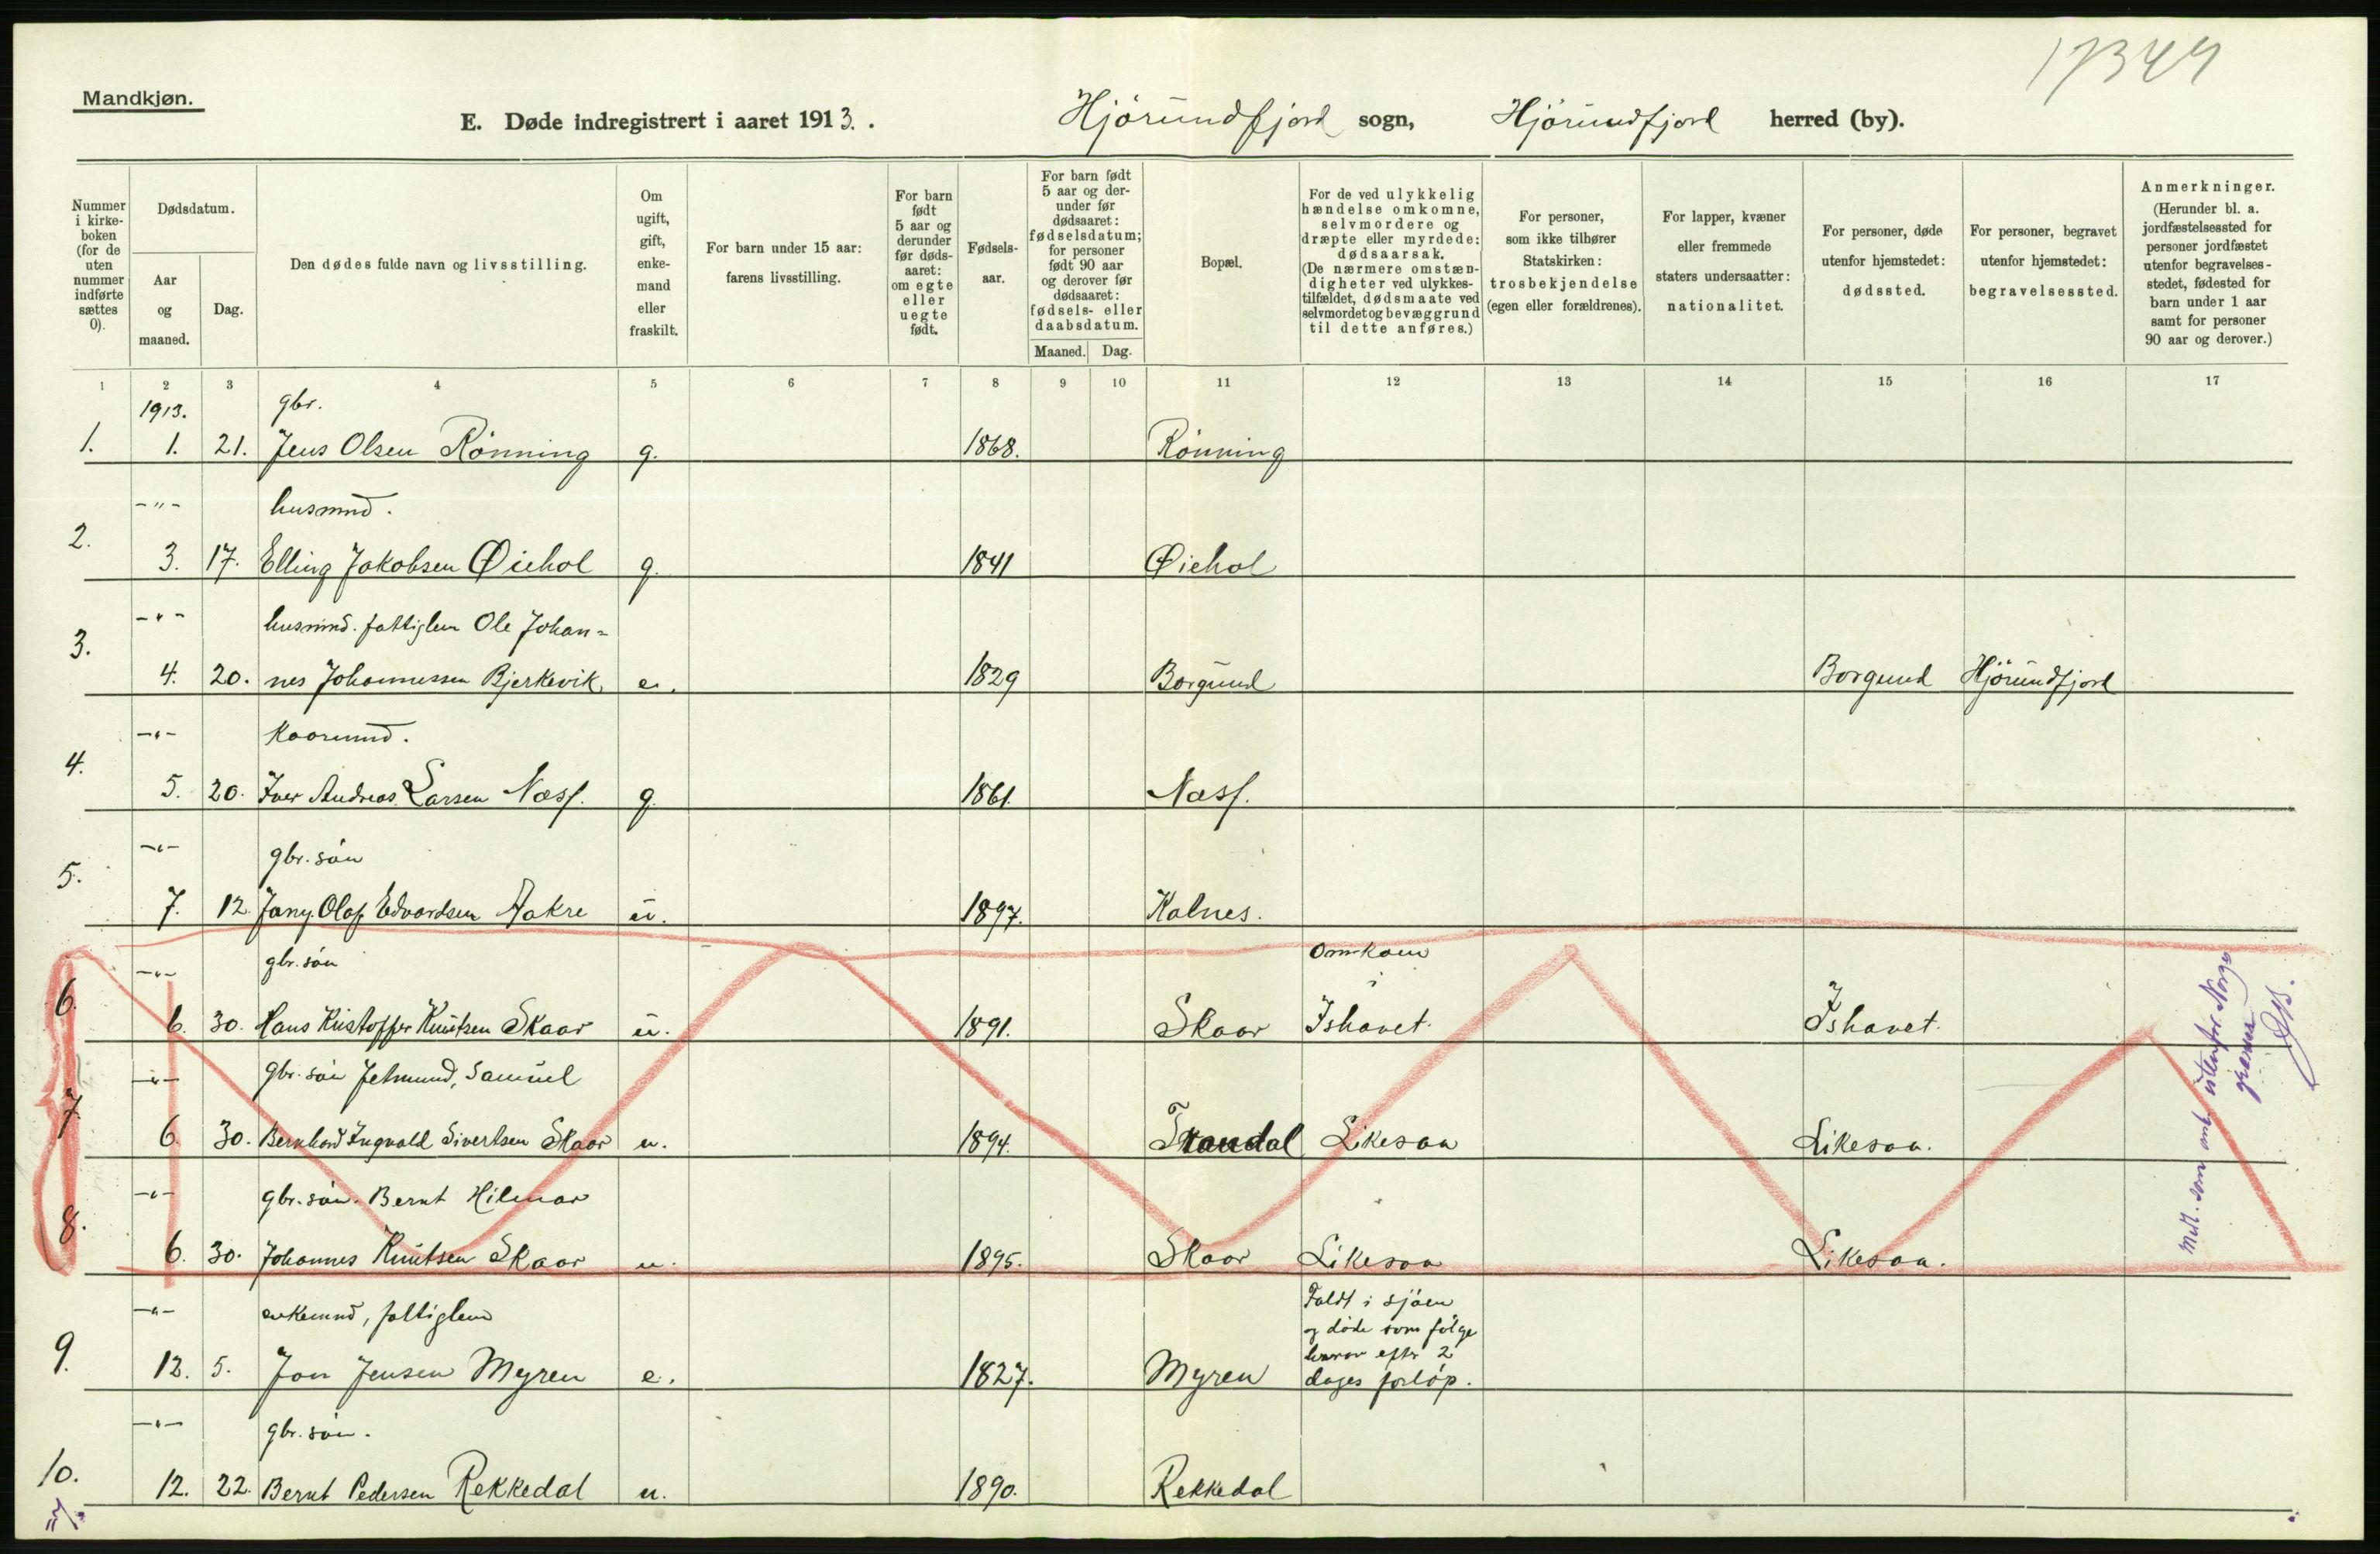 17344
Mandkjøn.
E. Døde indregistrert i aaret 1913. Hjørundfjord sogn, Hjørundfjord herred (by).
Nummer i kirke-boken (for de uten nummer indførte sættes 0).
Dødsdatum.
Aar og maaned.
Dag.
Den dødes fulde navn og livsstilling.
Om ugift, gift, enke-mand eller fraskilt.
For barn under 15 aar: farens livsstilling.
For barn født 5 aar og derunder før døds-aaret: om egte eller uegte født.
Fødsels-aar.
For barn født 5 aar og der-under før dødsaaret: fødselsdatum; for personer født 90 aar og derover før dødsaaret: fødsels- eller daabsdatum.
Maaned. Dag.
Bopæl.
For de ved ulykkelig hændelse omkomne, selvmordere og dræpte eller myrdede: dødsaarsak. (De nærmere omstæn-digheter ved ulykkes-tilfældet, dødsmaate ved selvmordet og bevæggrund til dette anføres.)
For personer, som ikke tilhører Statskirken: trosbekjendelse (egen eller forældrenes).
For lapper, kvæner eller fremmede staters undersaatter: nationalitet.
For personer, døde utenfor hjemstedet: dødssted.
For personer, begravet utenfor hjemstedet: begravelsessted.
Anmerkninger. (Herunder bl. a. jordfæstelsessted for personer jordfæstet utenfor begravelses-stedet, fødested for barn under 1 aar samt for personer 90 aar og derover.)
1 2 3 4 5 6 7 8 9 10 11 12 13 14 15 16 17
1913. gbr.
1. 1. 21. Jens Olsen Rønning g. 1868. Rønning
-"- husmnd.
2. 3. 17. Elling Jakobsen Øiehol g. 1841 Øiehol
-"- husmnd. fattiglem Ole Johan=
3. 4. 20. nes Johannessen Bjerkevik e. 1829 Borgund Borgund Hjørundfjord
-"- kaarmnd.
4. 5. 20. Iver Andreas Larsen Næss. g. 1861. Næss.
-"- gbr. søn
5. 7. 12. Jany Olaf Edvardsen Aakre u. 1897. Kalnes.
-"- gbr. søn Omkom i
6. 6. 30. Hans Kristoffer Knutsen Skaar u. 1891. Skaar Ishavet. Ishavet.
-"- gbr. søn Jetmund, Samuel
7. 6. 30. Bernhard Ingvald Sivertsen Skaar u. 1894. Standal Likesaa Likesaa.
-"- gbr. søn. Bernt Hilmar
8. 6. 30. Johannes Knutsen Skaar u. 1895. Skaar Likesaa Likesaa.
Medt. som omk. utenfor Norges grænser
-"- enkemnd, fattiglem Faldt i sjøen
og døde som følge
herav efter 2
9. 12. 5. Jon Jensen Myren e. 1827. Myren dages forløp.
-"- gbr. søn.
10. 12. 22. Bernt Pedersen Rekkedal u. 1890. Rekkedal